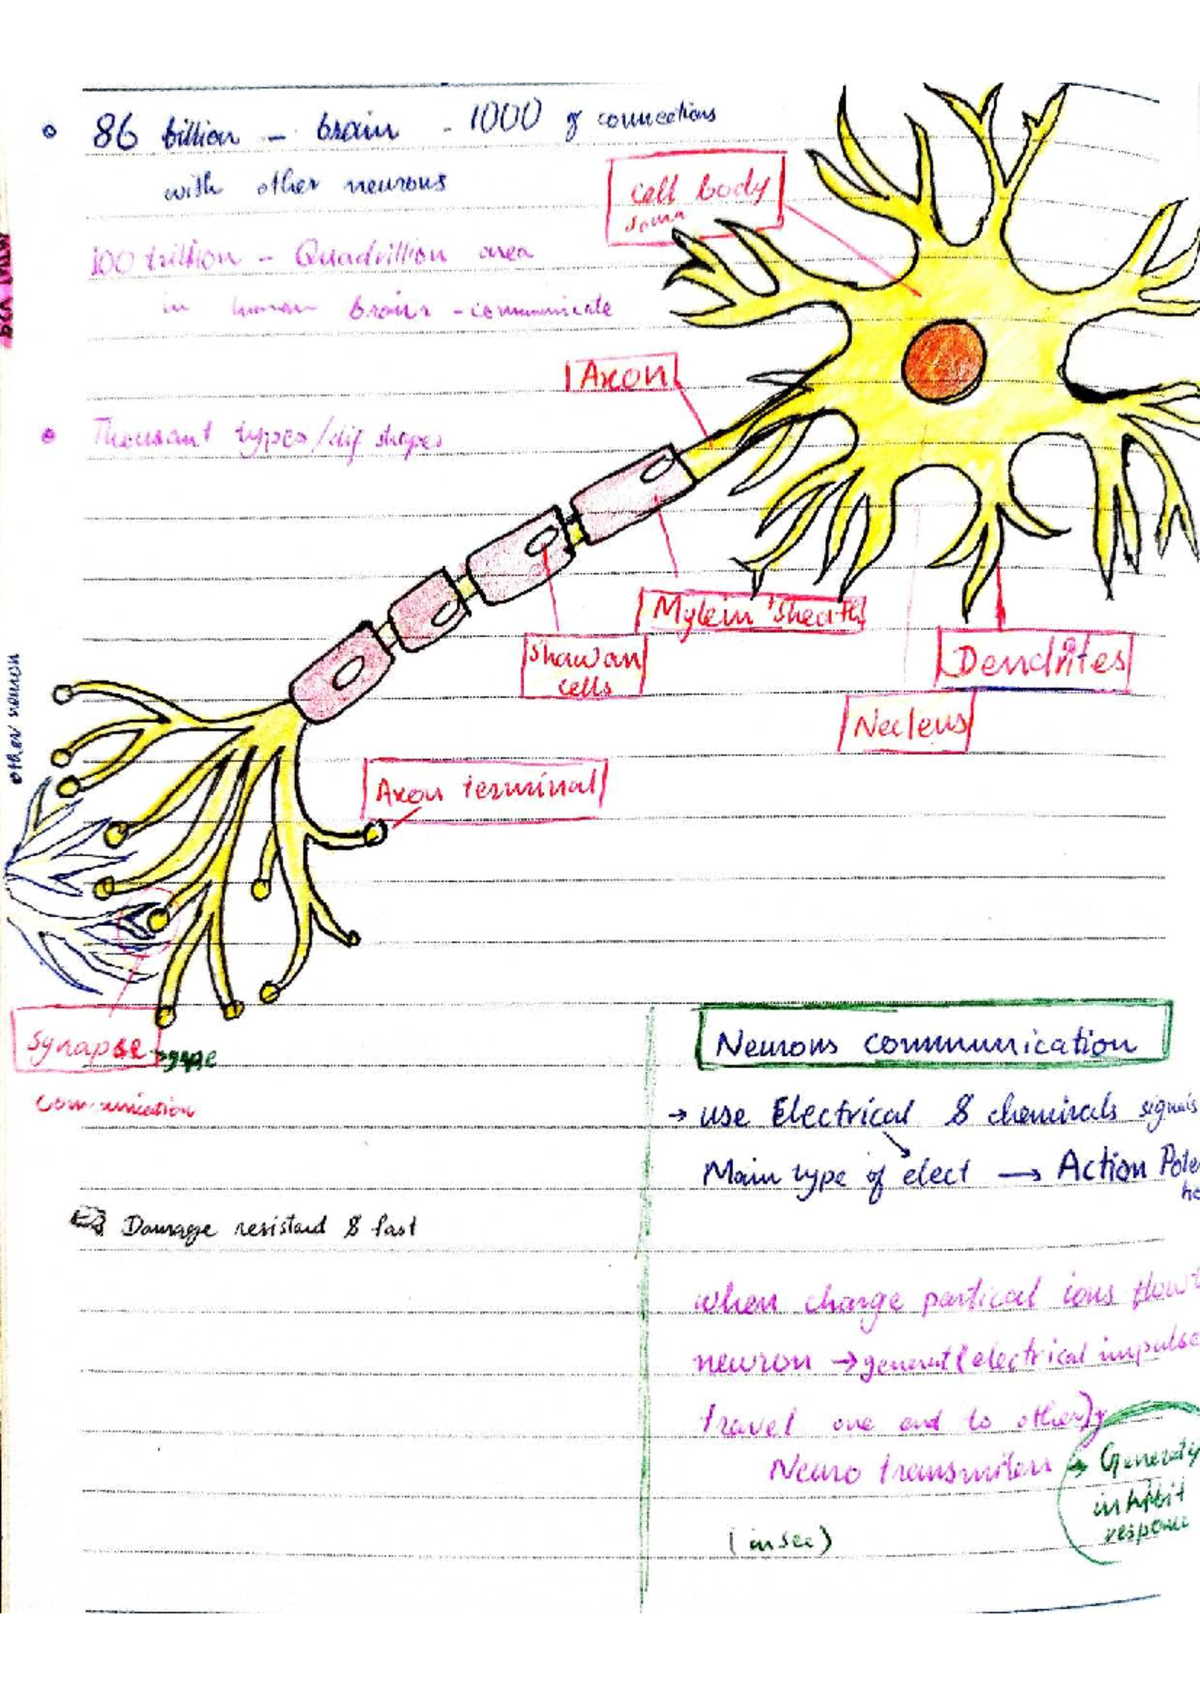 86 billion - brain - 1000 of connections
with other neurons
100 trillion - Quadrillion area
in human brains - communicate
Thousant types/dif shapes
Cell body
soma
Axon
Mylein sheath
Shawan
cells
Dendrites
Necleus
other neuron
Axon terminal
Synapse → gape
communication
Damage resistand & fast
Neurons communication
→ use Electrical & chemicals signals
Main type of elect → Action
when charge partical ions flow
neuron → generat (electrical impulse
travel one end to other)
Neuro transmiters → Generat
inhibit
response
(in sec)